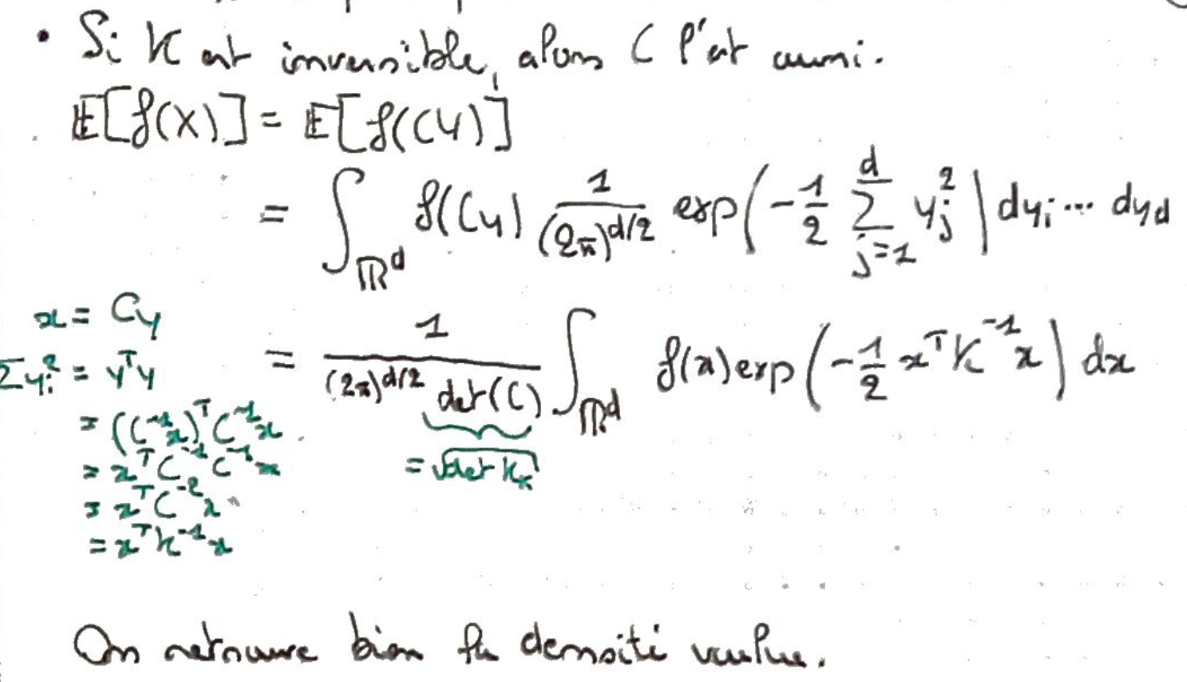 • Si K est inversible, alors C l'est aussi.
𝔼[f(X)] = 𝔼[f(CY)]
= ∫_{ℝ^d} f(Cy) 1/(2π)^{d/2} exp(-1/2 Σ_{j=1}^{d} y_j^2) dy_i ... dy_d
x = Cy
Σy_i^2 = y^T y
= (C^{-1}x)^T C^{-1}x
= x^T C^{-1} C^{-1} x
= x^T C^{-2} x
= x^T K^{-1} x
= 1/((2π)^{d/2} det(C)) ∫_{ℝ^d} f(x) exp(-1/2 x^T K^{-1} x) dx
= √(det K_x)
On retrouve bien la densité voulue.